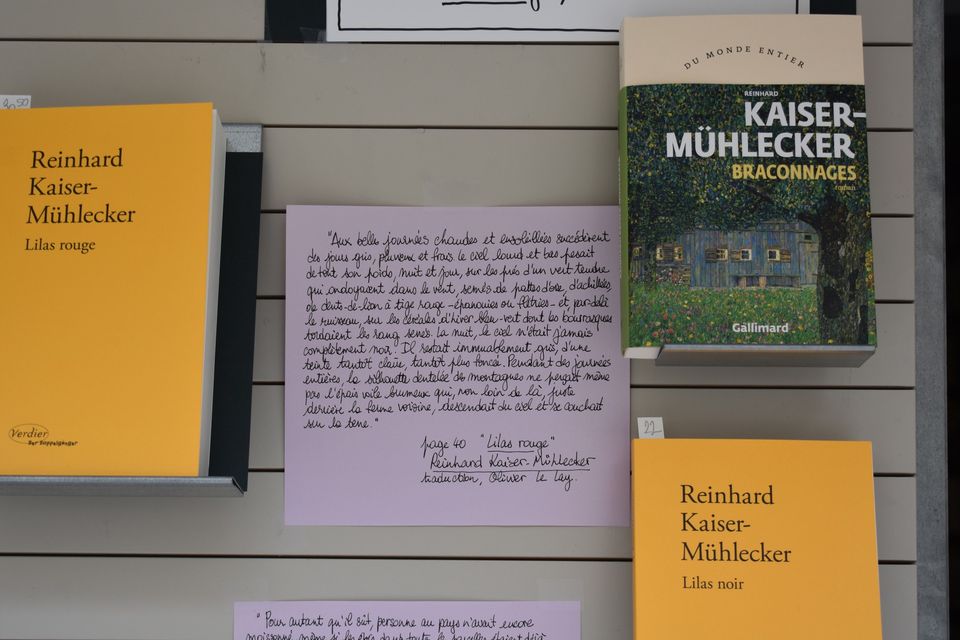 20 50
Reinhard
Kaiser-
Mühlecker
Lilas rouge
Verdier
Der Doppelgänger
"Aux belles journées chaudes et ensoleillées succédèrent
des jours gris, pluvieux et frais. le ciel lourd et bas pesait
de tout son poids, nuit et jour, sur les prés d'un vert tendre
qui ondoyaient dans le vent, semés de pattes d'oie, d'achillées,
de dents-de-lion à tige rouge - épanouies ou flétries - et par-delà
le ruisseau, sur les céréales d'hiver bleu-vert dont les bourrasques
tordaient les rangs serrés. La nuit, le ciel n'était jamais
complètement noir. Il restait immuablement gris, d'une
teinte tantôt claire, tantôt plus foncée. Pendant des journées
entières, la silhouette dentelée des montagnes ne perçait même
pas l'épais voile brumeux qui, non loin de là, juste
derrière la ferme voisine, descendait du ciel et se couchait
sur la terre."
page 40 "Lilas rouge"
Reinhard Kaiser-Mühlecker
traduction, Olivier Le Lay.
DU MONDE ENTIER
REINHARD
KAISER-
MÜHLECKER
BRACONNAGES
roman
Gallimard
22
Reinhard
Kaiser-
Mühlecker
Lilas noir
"Pour autant qu'il sût, personne au pays n'avait encore
moissonné, même si les épis dans toute